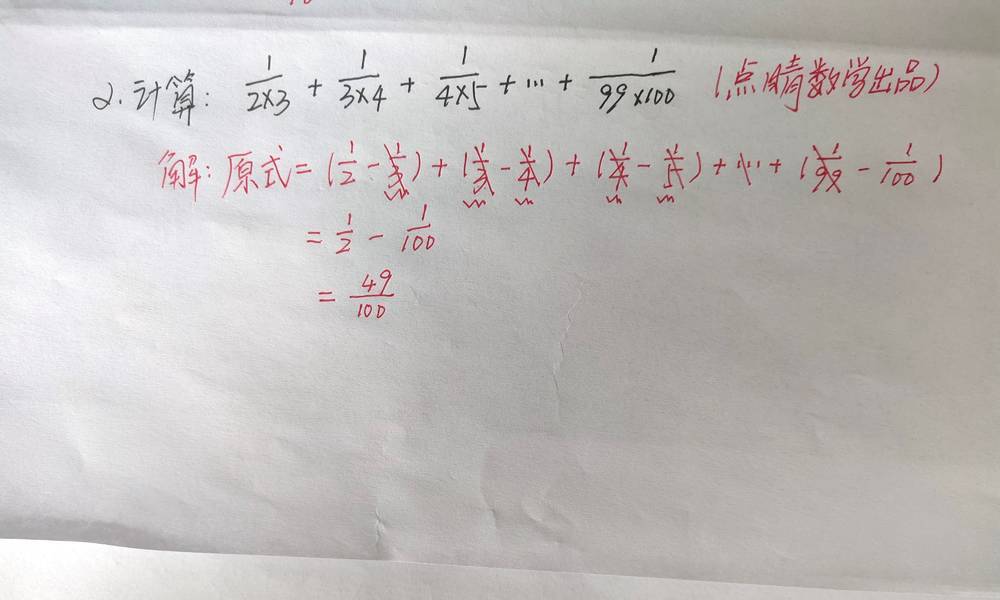 2.计算: 1/2×3 + 1/3×4 + 1/4×5 + ... + 1/99×100 (点睛数学出品)
解: 原式=(1/2 - 1/3) + (1/3 - 1/4) + (1/4 - 1/5) + ... + (1/99 - 1/100)
= 1/2 - 1/100
= 49/100